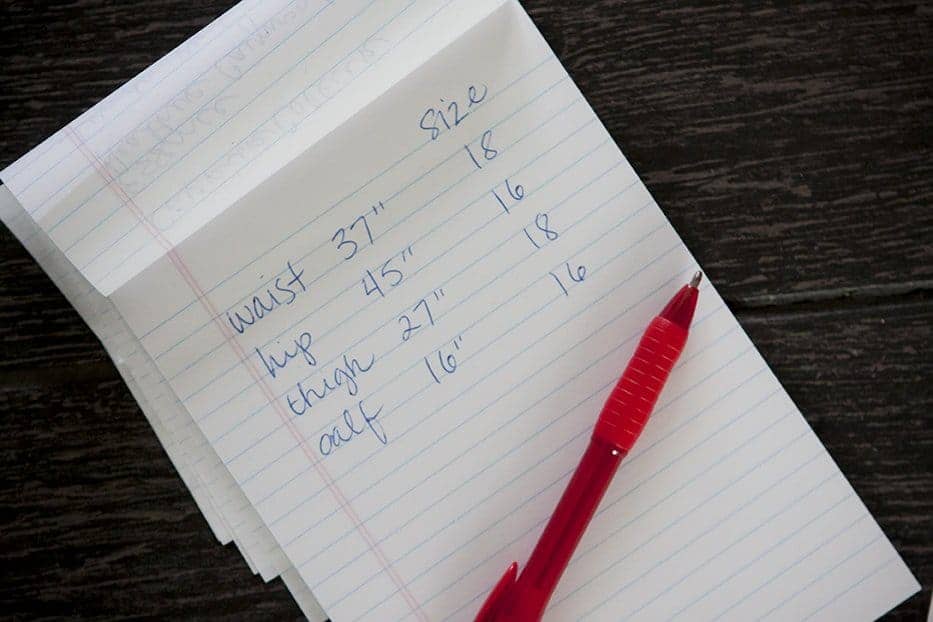 size
waist 37" 18
hip 45" 16
thigh 27" 18
calf 16" 16